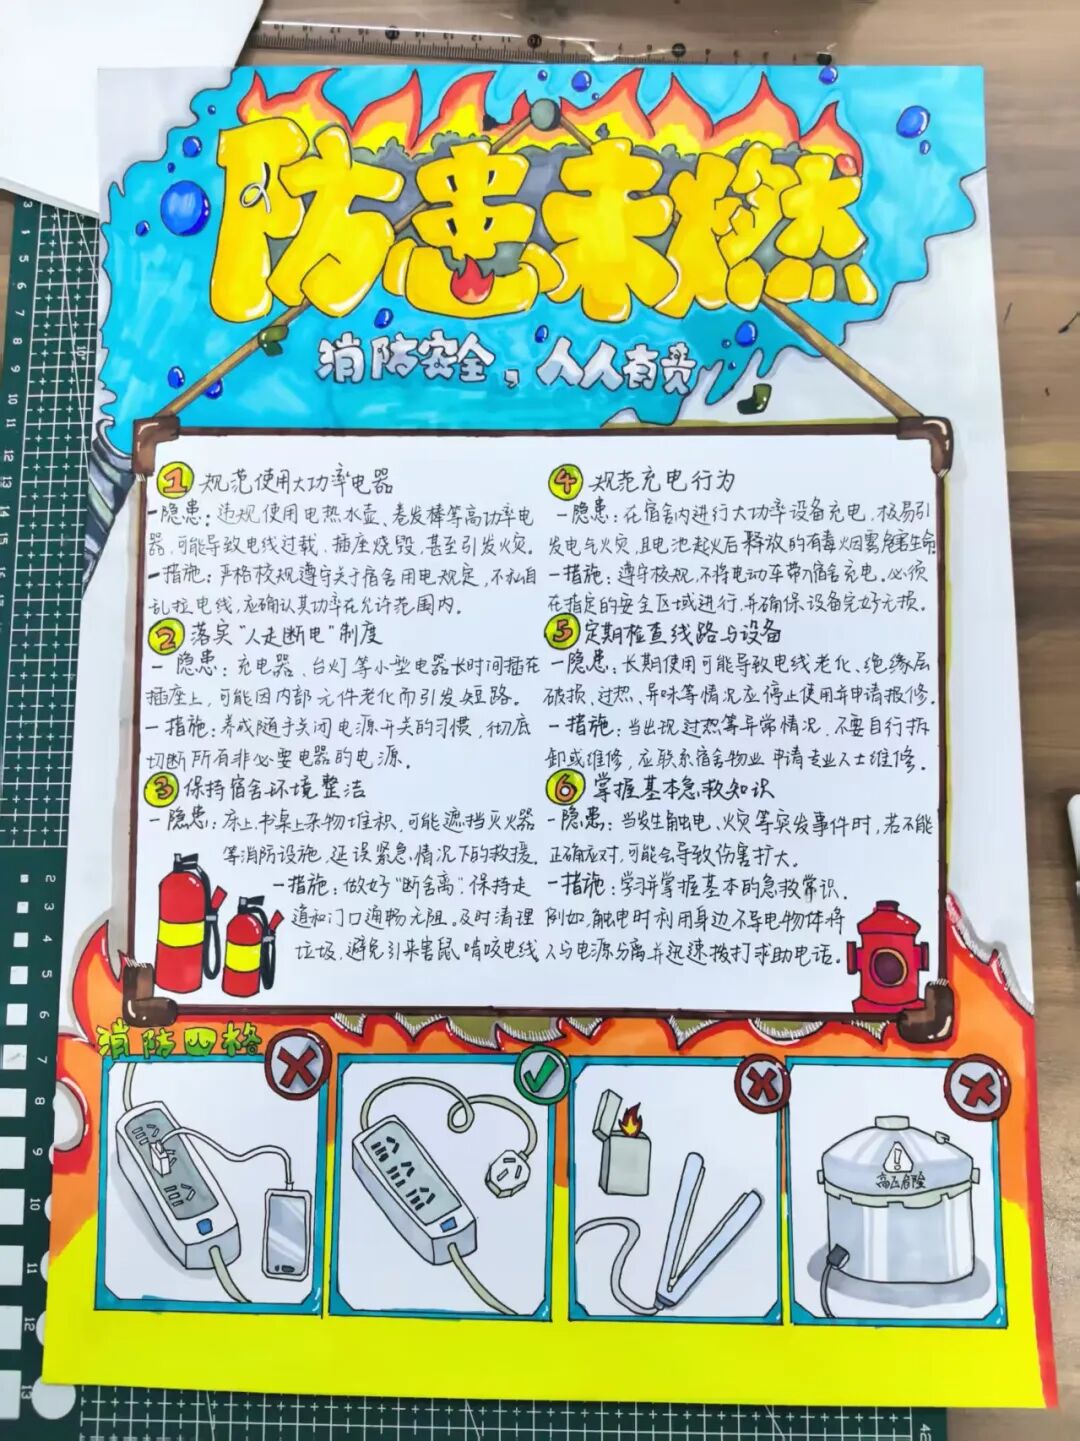 防患未燃
消防安全，人人有责
1 规范使用大功率电器
-隐患：违规使用电热水壶、卷发棒等高功率电
器，可能导致电线过载、插座烧毁，甚至引发火灾。
-措施：严格校规遵守关于宿舍用电规定，不私自
乱拉电线，应确认其功率在允许范围内。
2 落实“人走断电”制度
- 隐患：充电器、台灯等小型电器长时间插在
插座上，可能因内部元件老化而引发短路。
-措施：养成随手关闭电源开关的习惯，彻底
切断所有非必要电器的电源。
3 保持宿舍环境整洁
-隐患：床上、书桌上杂物堆积，可能遮挡灭火器
等消防设施，延误紧急情况下的救援。
-措施：做好“断舍离”，保持走
道和门口通畅无阻。及时清理
垃圾，避免引来害鼠啃咬电线
4 规范充电行为
-隐患：在宿舍内进行大功率设备充电，极易引
发电气火灾，且电池起火后释放的有毒烟雾危害生命
-措施：遵守校规，不将电动车带入宿舍充电。必须
在指定的安全区域进行，并确保设备完好无损。
5 定期检查线路与设备
-隐患：长期使用可能导致电线老化、绝缘层
破损、过热、异味等情况应停止使用并申请报修。
-措施：当出现过热等异常情况，不要自行拆
卸或维修，应联系宿舍物业申请专业人士维修。
6 掌握基本急救知识
-隐患：当发生触电、火灾等突发事件时，若不能
正确应对，可能会导致伤害扩大。
-措施：学习并掌握基本的急救常识.
例如，触电时利用身边不导电物体将
人与电源分离并迅速拨打求助电话。
消防四格
高压危险